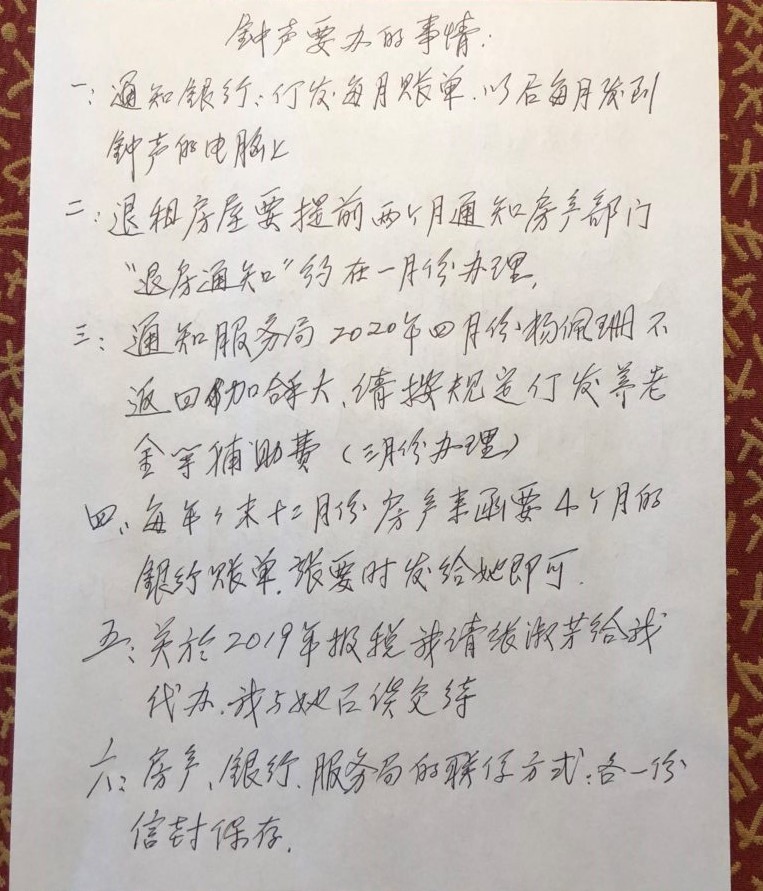 钟声要办的事情:
一:通知银行:打发每月账单.以后每月发到
钟声的电脑上
二:退租房屋要提前两个月通知房产部门
“退房通知”约在一月份办理.
三:通知服务局2020年四月份杨佩珊不
返回加拿大、请按规定打发养老
金等辅助费(三月份办理)
四、每年年末十二月份房产来函要4个月的
银行账单.张要时发给她即可.
五:关於2019年报税我请张淑芳给我
代办.我与她已谈交待
六:房产、银行、服务局的联系方式:各一份
信封保存.